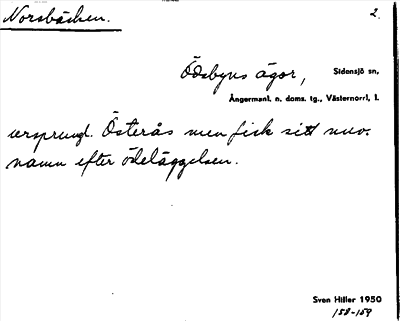 Norsbäcken.
2.
Ödsbyns ägor,
Sidensjö sn,
Ångermanl. n. doms. tg., Västernorrl, l.
ursprungl. Österås men fick sitt nuv.
namn efter ödeläggelsen.
Sven Hiller 1950
158-159